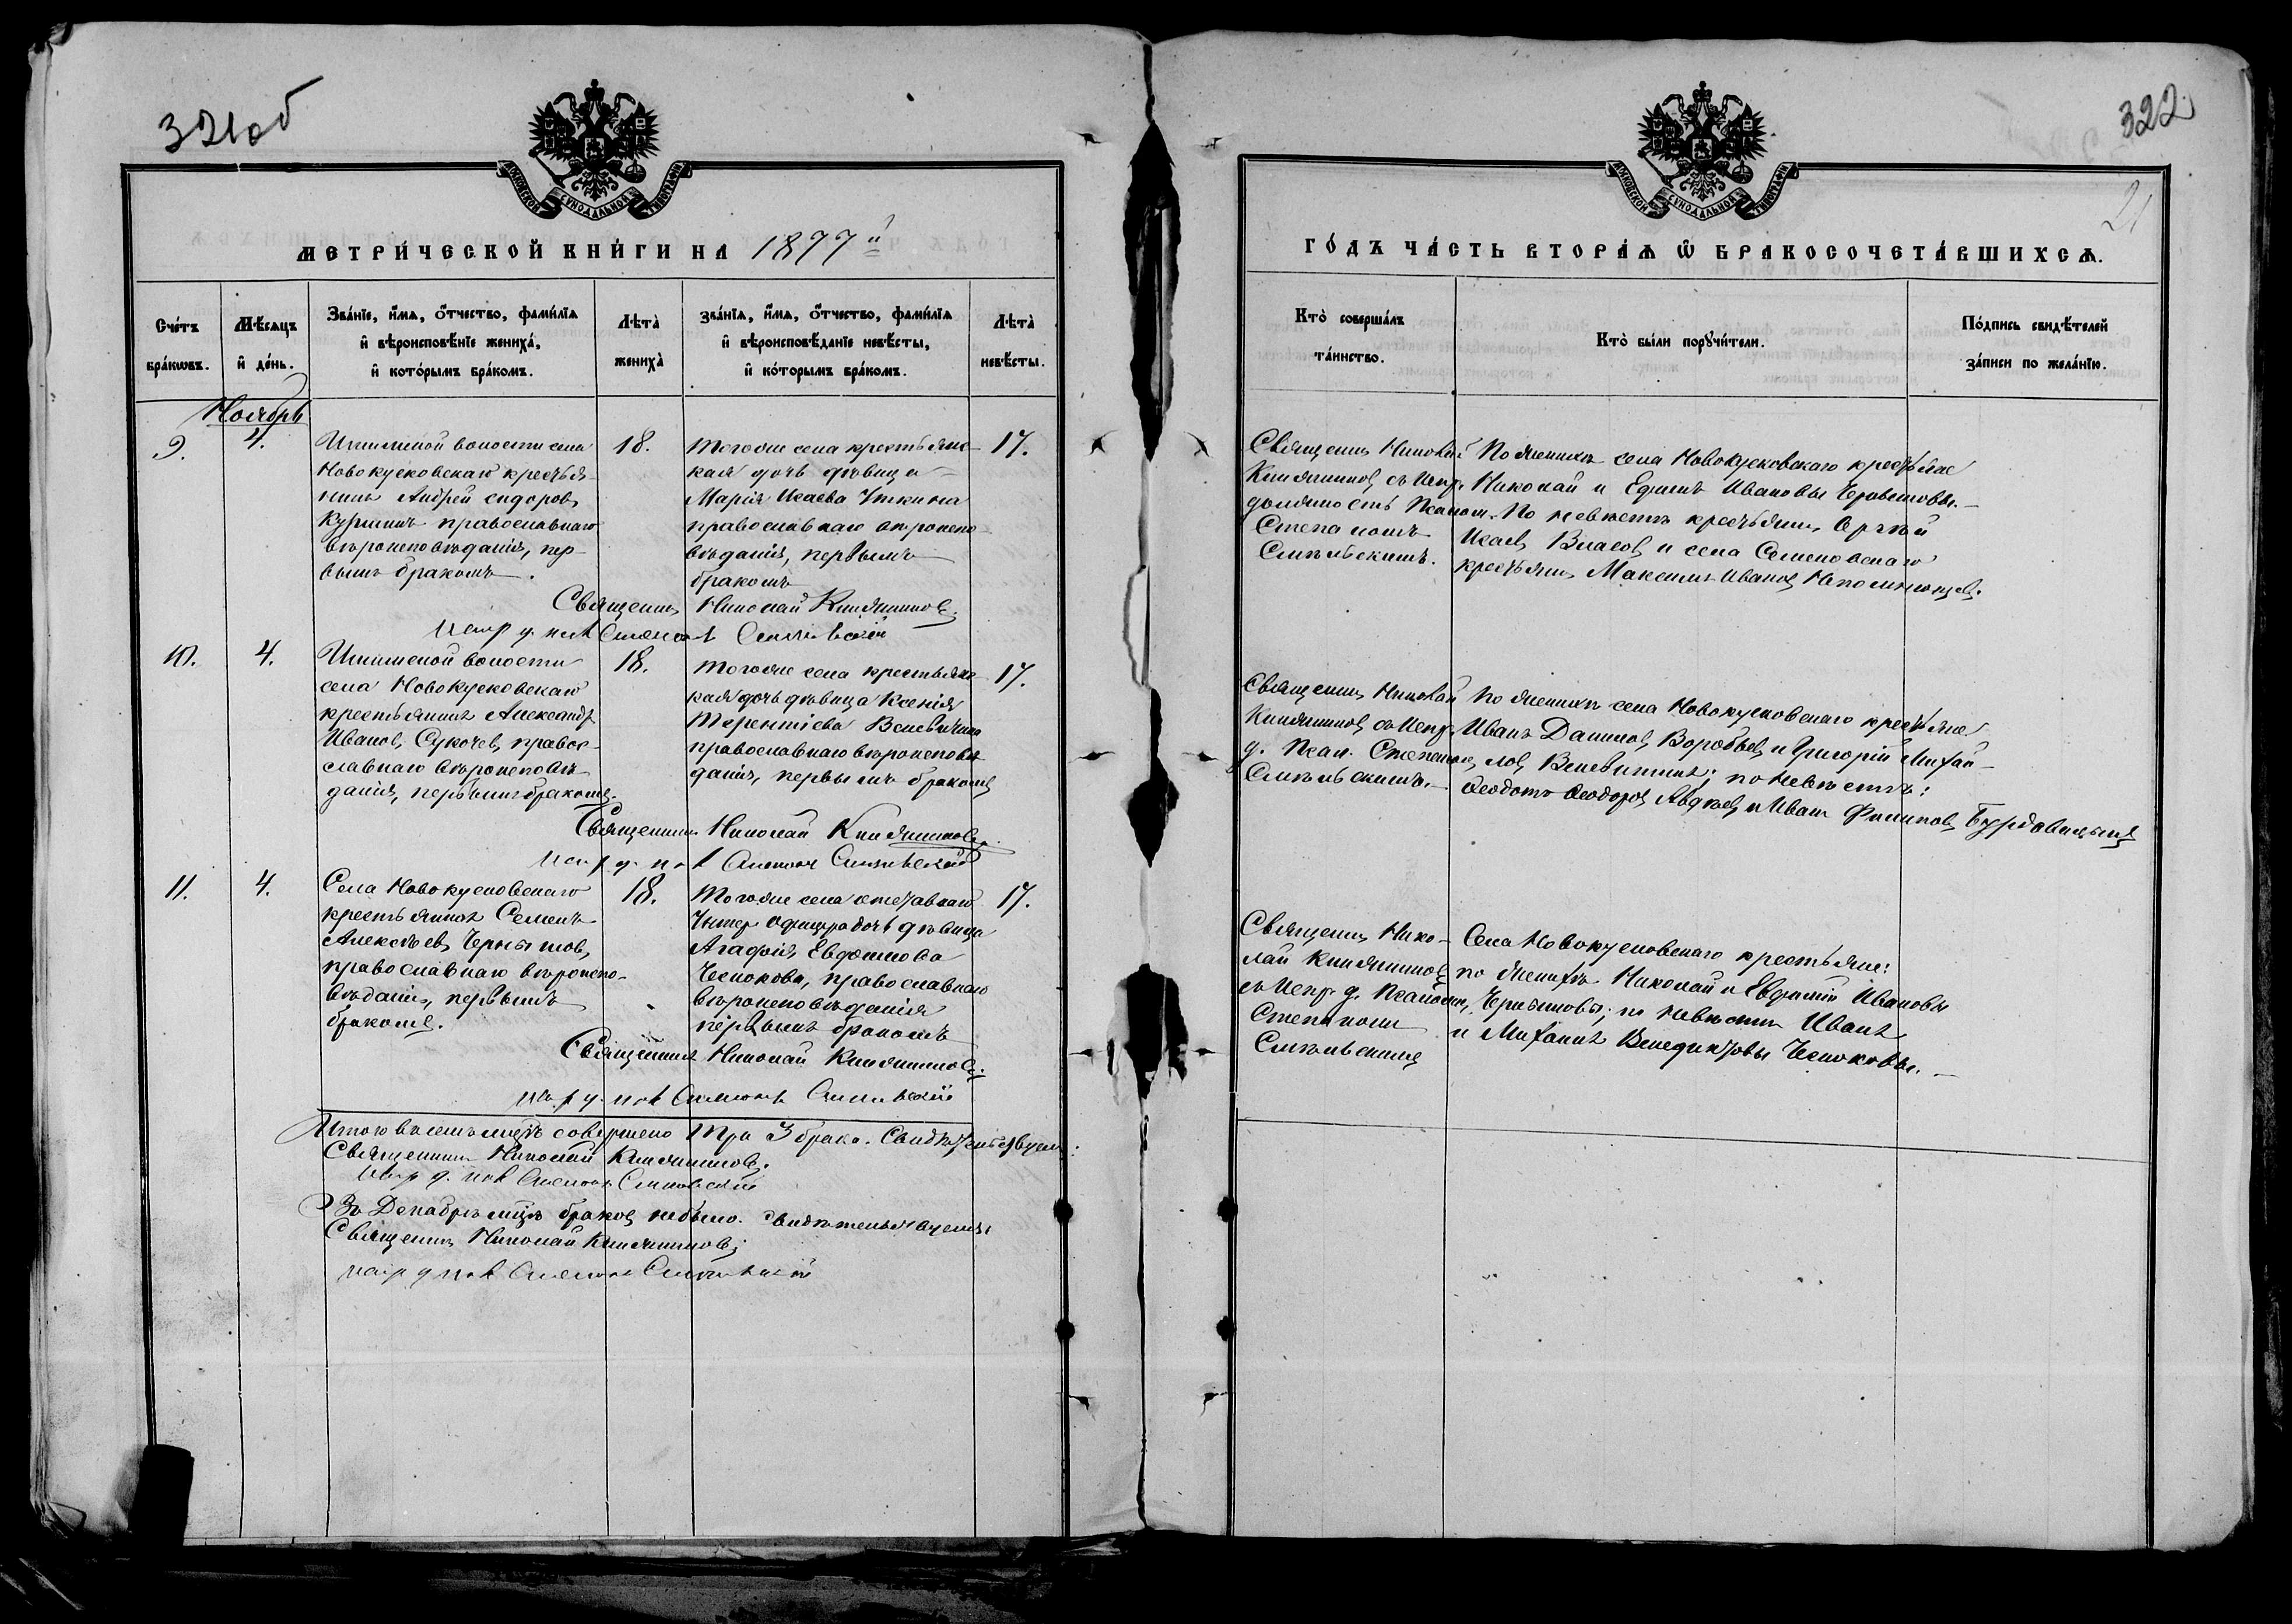 321об
МОСКОВСКОЙ СѴНОДАЛЬНОЙ ТИПОГРАФІИ
МЕТРИ́ЧЕСКОЙ КНИ́ГИ НА 1897й
Сче́тъ бра́кѡвъ.
Мѣ́сѧцъ и҆ де́нь.
Зва́нїе, и҆́мѧ, ѻ҆́тчество, фами́лїѧ
и҆ вѣроисповѣ́нїе жениха̀,
и҆ кото́рымъ бра́комъ.
Лѣта̀ жениха̀
зва́нїѧ, и҆́мѧ, ѻ҆́тчество, фами́лїѧ
и҆ вѣроисповѣ́данїе невѣ́сты,
и҆ ко́торымъ бра́комъ.
Лѣта̀ невѣ́сты.
Ноябрь
9.
4.
Ишимской волости села
Новокусковскаго крестья-
нинъ Андрей Сидоровъ
православнаго
вѣроисповѣданія, пер-
вымъ бракомъ.
18.
Того же села крестьянс-
кая дочь дѣвица
Марія Исаева Уткина
православнаго вѣроиспо-
вѣданія, первымъ
бракомъ
17.
Священникъ Николай Княжниновъ.
10.
4.
Ишимской волости
села Новокусковскаго
крестьянинъ Александръ
Ивановъ Сукочевъ, право-
славнаго вѣроисповѣ-
данія, первымъ бракомъ.
18.
Того же села крестьянс-
кая дочь дѣвица Ксенія
Терентіева
православнаго вѣроисповѣ-
данія, первымъ бракомъ
17.
Священникъ Николай Княжниновъ.
11.
4.
Села Новокусковскаго
крестьянинъ Семенъ
Алексѣевъ Чернышовъ,
православнаго вѣроиспо-
вѣданія, первымъ
бракомъ.
18.
Того же села отставнаго
Унтер офицера дочь дѣвица
Агафія Евдокимова
Чеснокова, православнаго
вѣроисповѣданія
первымъ бракомъ
17.
Священникъ Николай Княжниновъ.
Итого въ семъ мѣсяцѣ совершено три 3 брака. Свидѣтельствуемъ:
Священникъ Николай Княжниновъ.
Въ Декабрѣ мцѣ браковъ небыло. Свидѣтельствуемъ:
Священникъ Николай Княжниновъ;
322
21
МОСКОВСКОЙ СѴНОДАЛЬНОЙ ТИПОГРАФІИ
ГО́ДЪ ЧА́СТЬ ВТОРА́Ѧ Ѽ БРАКОСОЧЕТА́ВШИХСѦ.
Кто̀ соверша́лъ
та́инство.
Кто̀ бы́ли порꙋчи́тели.
По́дпись свидѣ́телей
за́писи по жела́нїю.
Священникъ Николай
Княжниновъ съ Испр.
должность Псалом.
Степаномъ
По женихѣ села Новокусковскаго крестьяне
Николай и Ефимъ Ивановы Чернышовы.
По невѣстѣ крестьянинъ Сергѣй
Исаевъ Власовъ и села Семеновскаго
крестьянинъ Максимъ Ивановъ
Священникъ Николай
Княжниновъ съ Испр.
д. Псал. Степаномъ
По женихѣ села Новокусковскаго крестьяне
Иванъ Даниловъ Воробьевъ и Григорій Михай-
ловъ; по невѣстѣ:
Ѳеодотъ Ѳеодоровъ Авдѣевъ и Иванъ Филиповъ
Священникъ Нико-
лай Княжниновъ
съ Испр. д. Псаломщ.
Степаномъ
Села Новокусковскаго крестьяне:
по женихѣ Николай и Евфимій Ивановы
Чернышовы; по невѣстѣ Иванъ
и Михаилъ Венедиктовы Чесноковы.